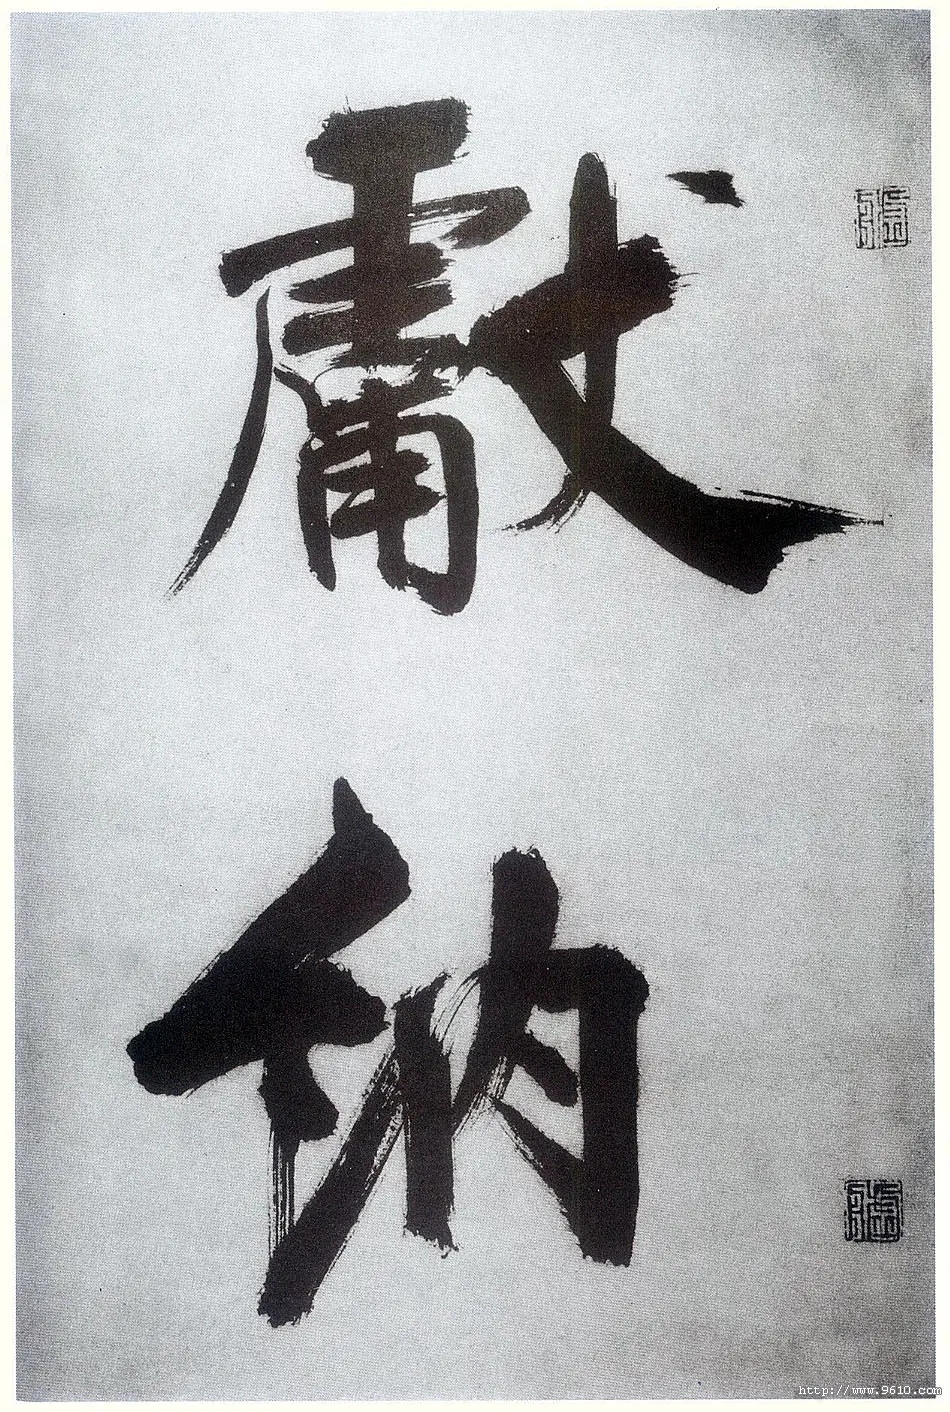 獻
納
http://www.9610.com